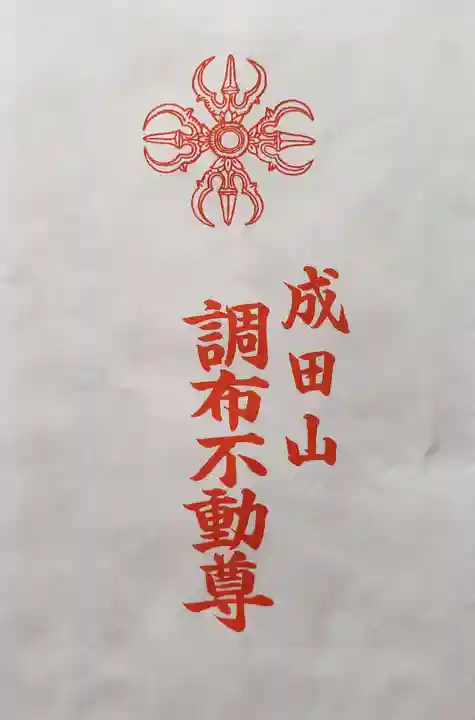 成田山
調布不動尊